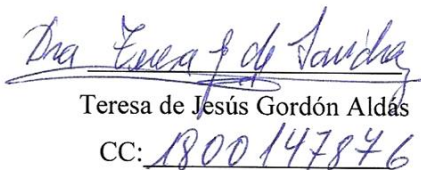 Dra Teresa J de Sánchez
Teresa de Jesús Gordón Aldás
CC: 1800147876